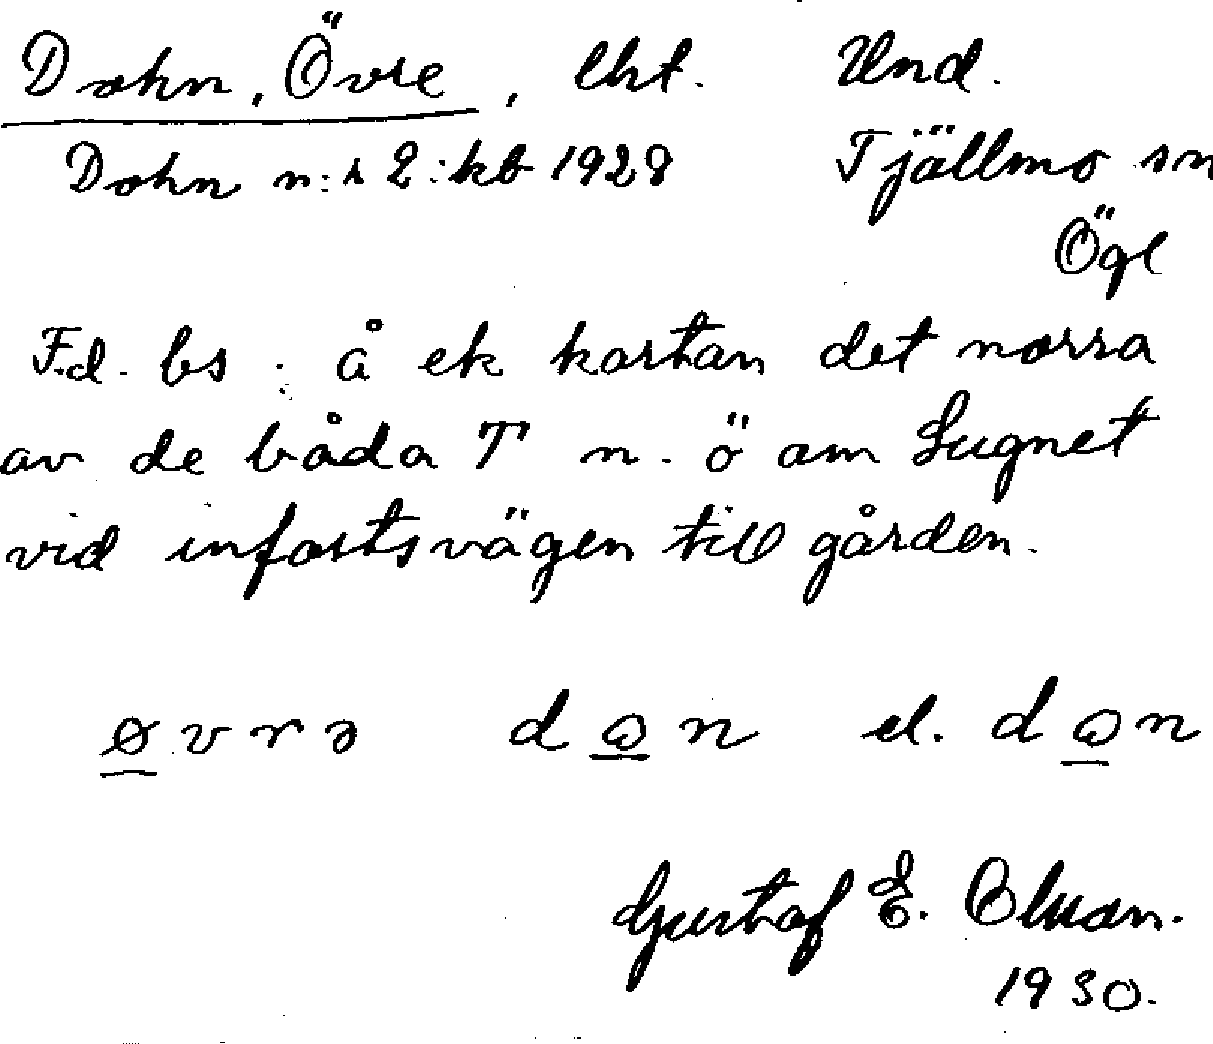 Dohn, Övre, lht. Und.
Dohn n:r 2:kb 1928 Tjällmo sn
Ögl
F.d. bs. å ek kartan det norra
av de båda T n. ö om Lugnet
vid infartsvägen till gården.
øvrə dɷn el. dɷn
Gustaf E.
1930.